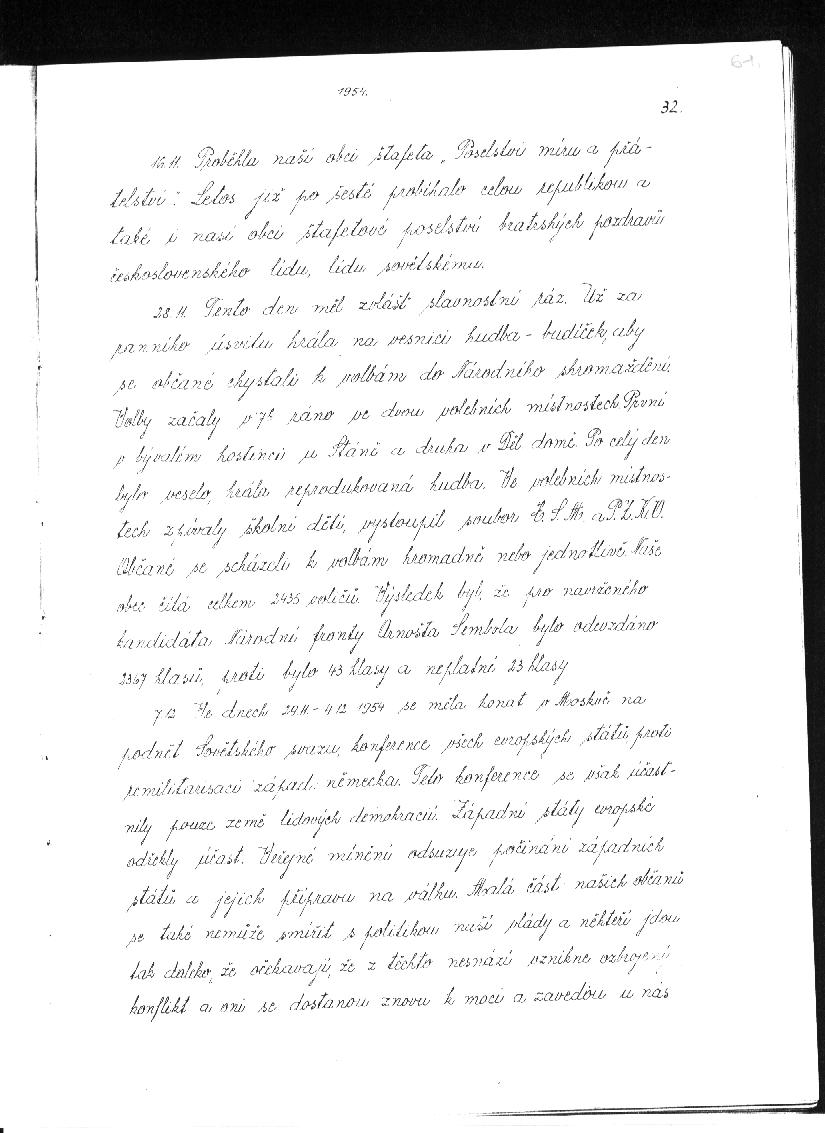 61.
1954.
32.
16.11. Proběhla naší obcí štafeta „Poselství míru a přá-
telství". Letos již po šesté probíhalo celou republikou a
také i naší obcí štafetové poselství bratrských pozdravů
československého lidu, lidu sovětskému.
28.11. Tento den měl zvlášť slavnostní ráz. Už za
ranního úsvitu hrála na vesnici hudba - budíček, aby
se občané chystali k volbám do Národního shromáždění.
Volby začaly v 7h ráno ve dvou volebních místnostech. První
v bývalém hostinci u Stáně a druhá v Děl domě. Po celý den
bylo veselo, hrála reprodukovaná hudba. Ve volebních místnos-
tech zpívaly školní děti, vystoupil soubor Č.S.M. a P.Z.K.V.
Občané se scházeli k volbám hromadně nebo jednotlivě. Naše
obec čítá celkem 2436 voličů. Výsledek byl, že pro navrženého
kandidáta Národní fronty Arnošta Sembola bylo odevzdáno
2367 hlasů, proti bylo 43 hlasy a neplatné 23 hlasy
7.12. Ve dnech 29.11. - 4.12. 1954 se měla konat v Moskvě na
podnět Sovětského svazu, konference všech evropských států proti
remilitarisaci západ. německa. Této konference se však účast-
nily pouze země lidových demokracií. Západní státy evropské
odřekly účast. Veřejné mínění odsuzuje počínání západních
států a jejich přípravu na válku. Malá část našich občanů
se také nemůže smířit s politikou naší vlády a někteří jdou
tak daleko, že očekávají, že z těchto nesnází vznikne ozbrojený
konflikt a oni se dostanou znovu k moci a zavedou u nás